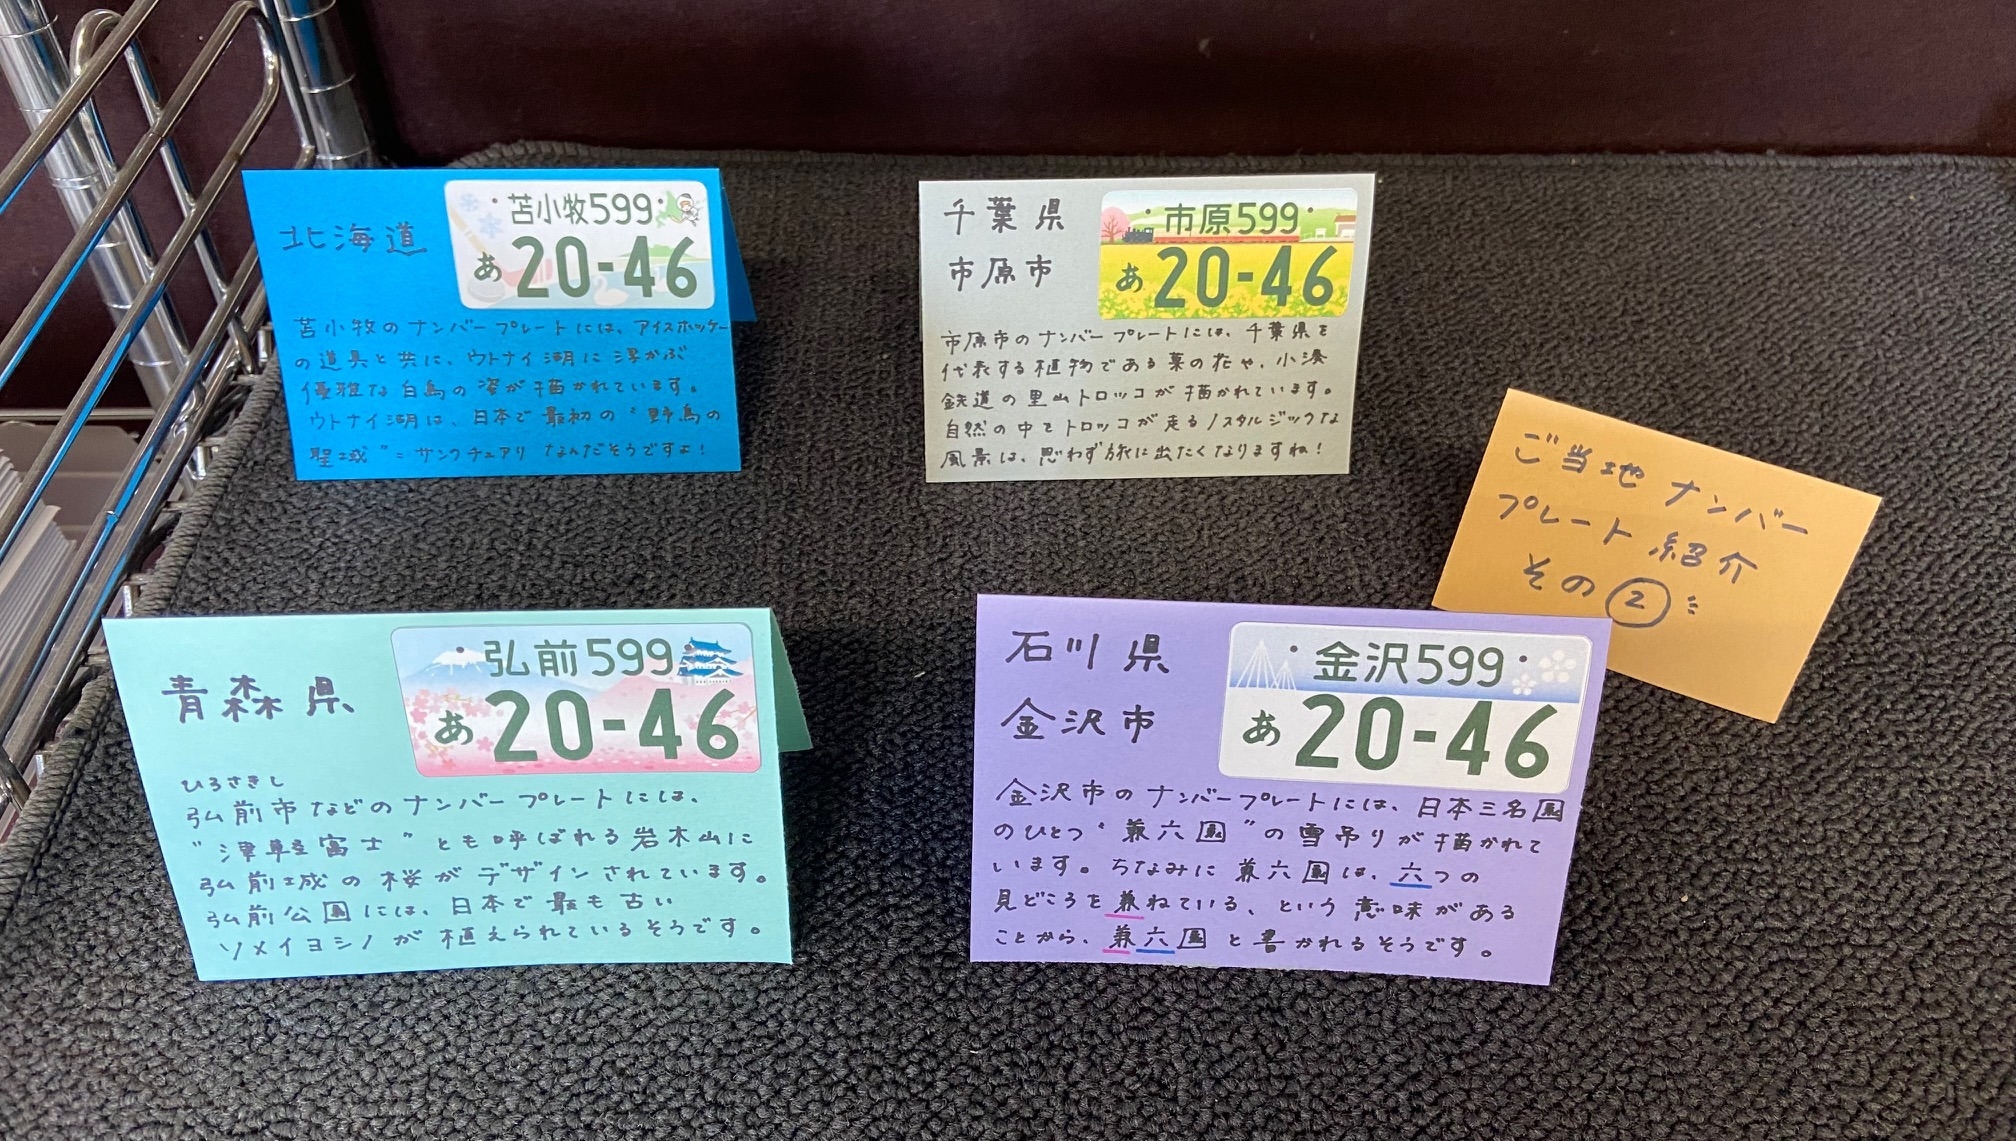 北海道
苫小牧599
あ 20-46
苫小牧のナンバープレートには、アイスホッケー
の道具と共に、ウトナイ湖に浮かぶ
優雅な白鳥の姿が描かれています。
ウトナイ湖は、日本で最初の“野鳥の
聖域”=サンクチュアリなんだそうですよ!
千葉県
市原市
市原599
あ 20-46
市原市のナンバープレートには、千葉県を
代表する植物である菜の花や、小湊
鉄道の里山トロッコが描かれています。
自然の中をトロッコが走るノスタルジックな
風景は、思わず旅に出たくなりますね!
ご当地ナンバー
プレート紹介
その②
青森県
弘前599
あ 20-46
ひろさきし
弘前市などのナンバープレートには、
“津軽富士”とも呼ばれる岩木山に
弘前城の桜がデザインされています。
弘前公園には、日本で最も古い
ソメイヨシノが植えられているそうです。
石川県
金沢市
金沢599
あ 20-46
金沢市のナンバープレートには、日本三名園
のひとつ“兼六園”の雪吊りが描かれて
います。ちなみに兼六園は、六つの
見どころを兼ねている、という意味がある
ことから、兼六園と書かれるそうです。